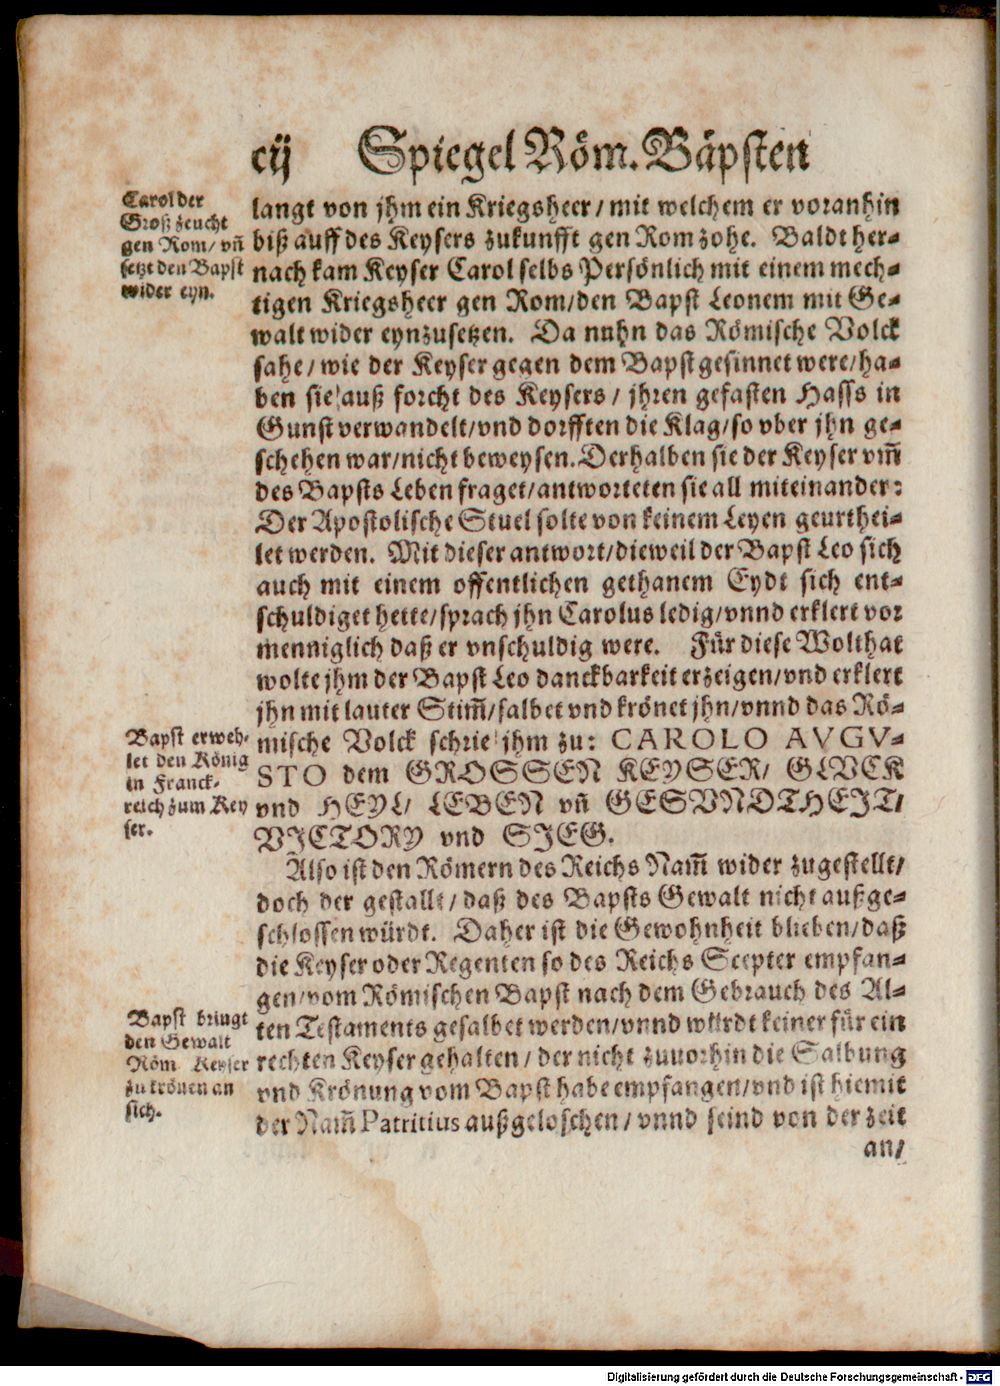 cij Spiegel Röm. Bäpsten
Carol der
Groß zeucht
gen Rom/ vñ
setzt den Bapst
wider eyn.
langt von jhm ein Kriegsheer/ mit welchem er voranhin
biß auff des Keysers zukunfft gen Rom zohe. Baldt her-
nach kam Keyser Carol selbs Persönlich mit einem mech-
tigen Kriegsheer gen Rom/den Bapst Leonem mit Ge-
walt wider eynzusetzen. Da nuhn das Römische Volck
sahe/ wie der Keyser gegen dem Bapst gesinnet were/ha-
ben sie auß forcht des Keysers/ jhren gefasten Hasss in
Gunst verwandelt/vnd dorfften die Klag/so vber jhn ge-
schehen war/nicht beweysen. Derhalben sie der Keyser vm̃
des Bapsts Leben fraget/antworteten sie all miteinander:
Der Apostolische Stuel solte von keinem Leyen geurthei-
let werden. Mit dieser antwort/dieweil der Bapst Leo sich
auch mit einem offentlichen gethanem Eydt sich ent-
schuldiget hette/sprach jhn Carolus ledig/vnnd erklert vor
menniglich daß er vnschuldig were. Für diese Wolthat
wolte jhm der Bapst Leo danckbarkeit erzeigen/vnd erklert
jhn mit lauter Stim̃/salbet vnd krönet jhn/vnnd das Rö-
Bapst erweh-
let den König
in Franck-
reich zum Key
ser.
mische Volck schrie jhm zu: CAROLO AVGV-
STO dem GROSSEN KEYSER/ GLVCK
vnd HEYL/ LEBEN vñ GESVNDTHEJT/
VJCTORY vnd SJEG.
Also ist den Römern des Reichs Nam̃ wider zugestellt/
doch der gestallt/ daß des Bapsts Gewalt nicht außge-
schlossen würdt. Daher ist die Gewohnheit blieben/daß
die Keyser oder Regenten so des Reichs Scepter empfan-
gen/vom Römischen Bapst nach dem Gebrauch des Al-
Bapst bringt
den Gewalt
Röm Keyser
zu krönen an
sich.
ten Testaments gesalbet werden/vnnd würdt keiner für ein
rechten Keyser gehalten/ der nicht zuuorhin die Salbung
vnd Krönung vom Bapst habe empfangen/vnd ist hiemit
der Nam̃ Patritius außgeloschen/ vnnd seind von der zeit
an/
Digitalisierung gefördert durch die Deutsche Forschungsgemeinschaft - DFG